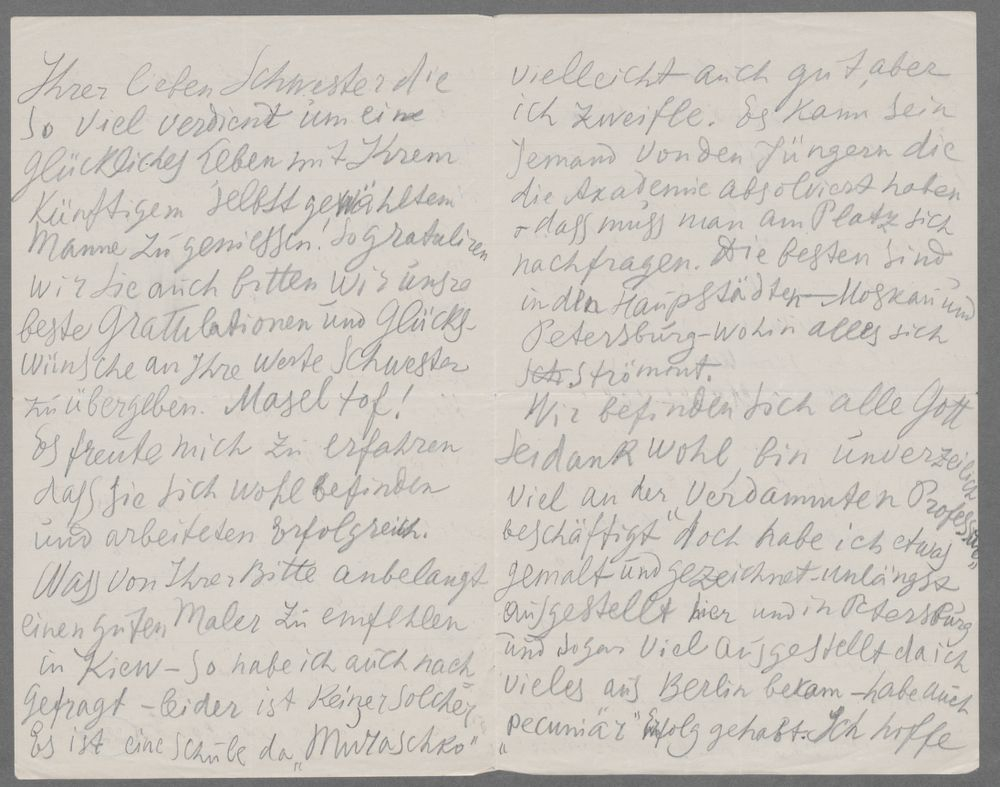 Ihrer lieben Schwester die
so viel verdient um eine
glückliches Leben mit Ihrem
Künftigem selbst gewähltem
Manne zu geniessen! So gratuliren
wir Sie auch bitten wir unsre
beste Gratulationen und Glücks-
wünsche an Ihre werte Schwester
zu übergeben. Masel tof!
Es freute mich zu erfahren
dass Sie sich wohl befinden
und arbeiteten Erfolgreich.
Wass von Ihrer Bitte anbelangt
einen guten Maler zu empfehlen
in Kiew – so habe ich auch nach
gefragt – leider ist keiner solcher
Es ist eine Schule da „Muraschko"
vielleicht auch gut, aber
ich zweifle. Es kann sein
Jemand von den Jüngern die
die Akademie absolviert haben
– dass muss man am Platz sich
nachfragen. Die besten sind
in den Haupstädten – Moskau und
Petersburg – wohin alles sich
strömmt.
Wir befinden sich alle Gott
sei dank wohl, bin unverzeilich
viel an der „Verdammten Profession"
beschäftigt doch habe ich etwas
gemalt und gezeichnet – unlängst
ausgestellt hier und in Petersburg
und sogar viel ausgestellt da ich
vieles aus Berlin bekam – habe auch
„pecuniär" Erfolg gehabt. Ich hoffe